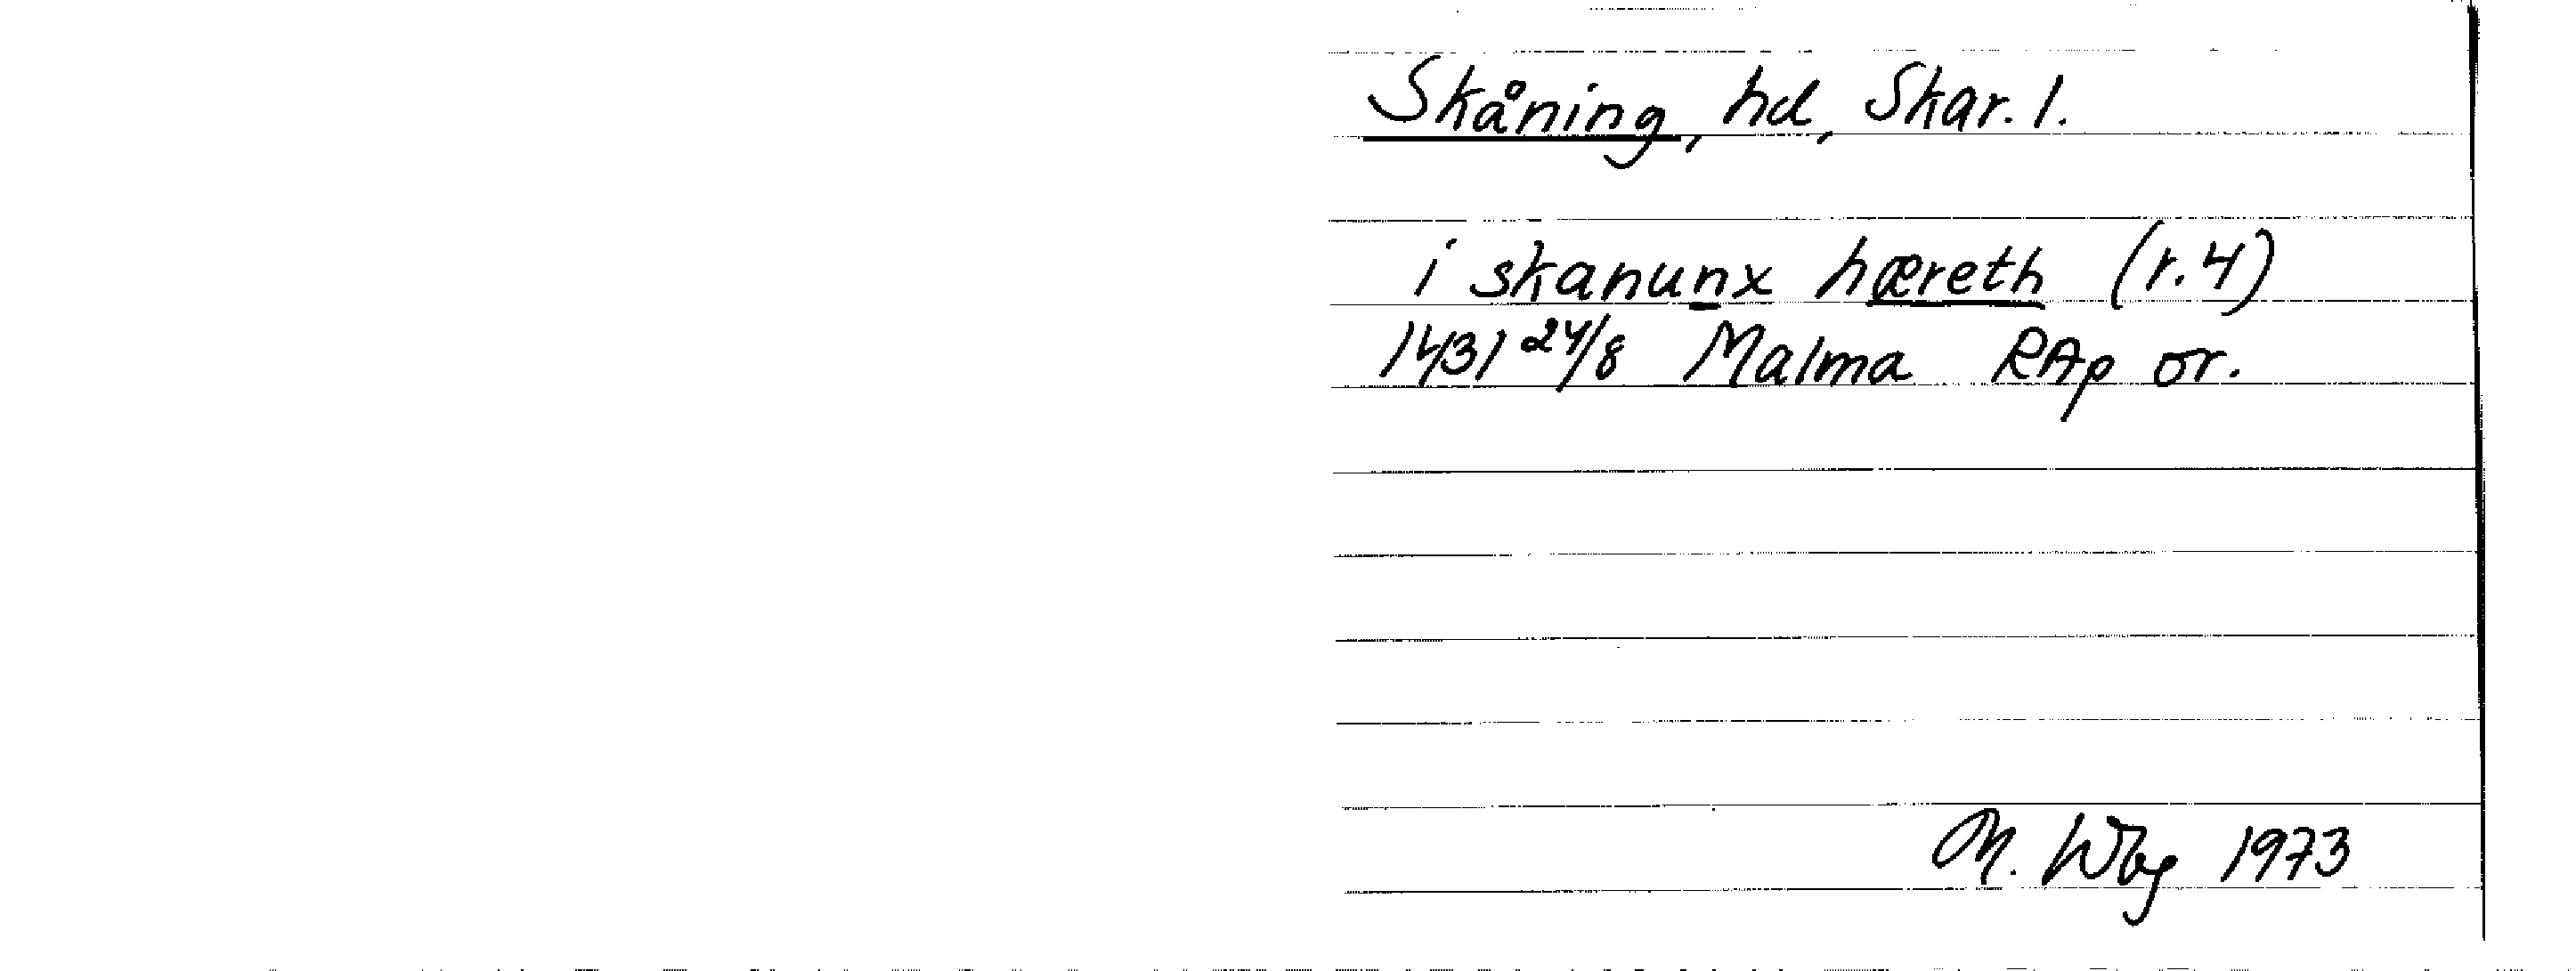 Skåning, hd, Skar. l.
i skanunx hæreth (r. 4)
1431 24/8 Malma RAp or.
M. Wbg 1973